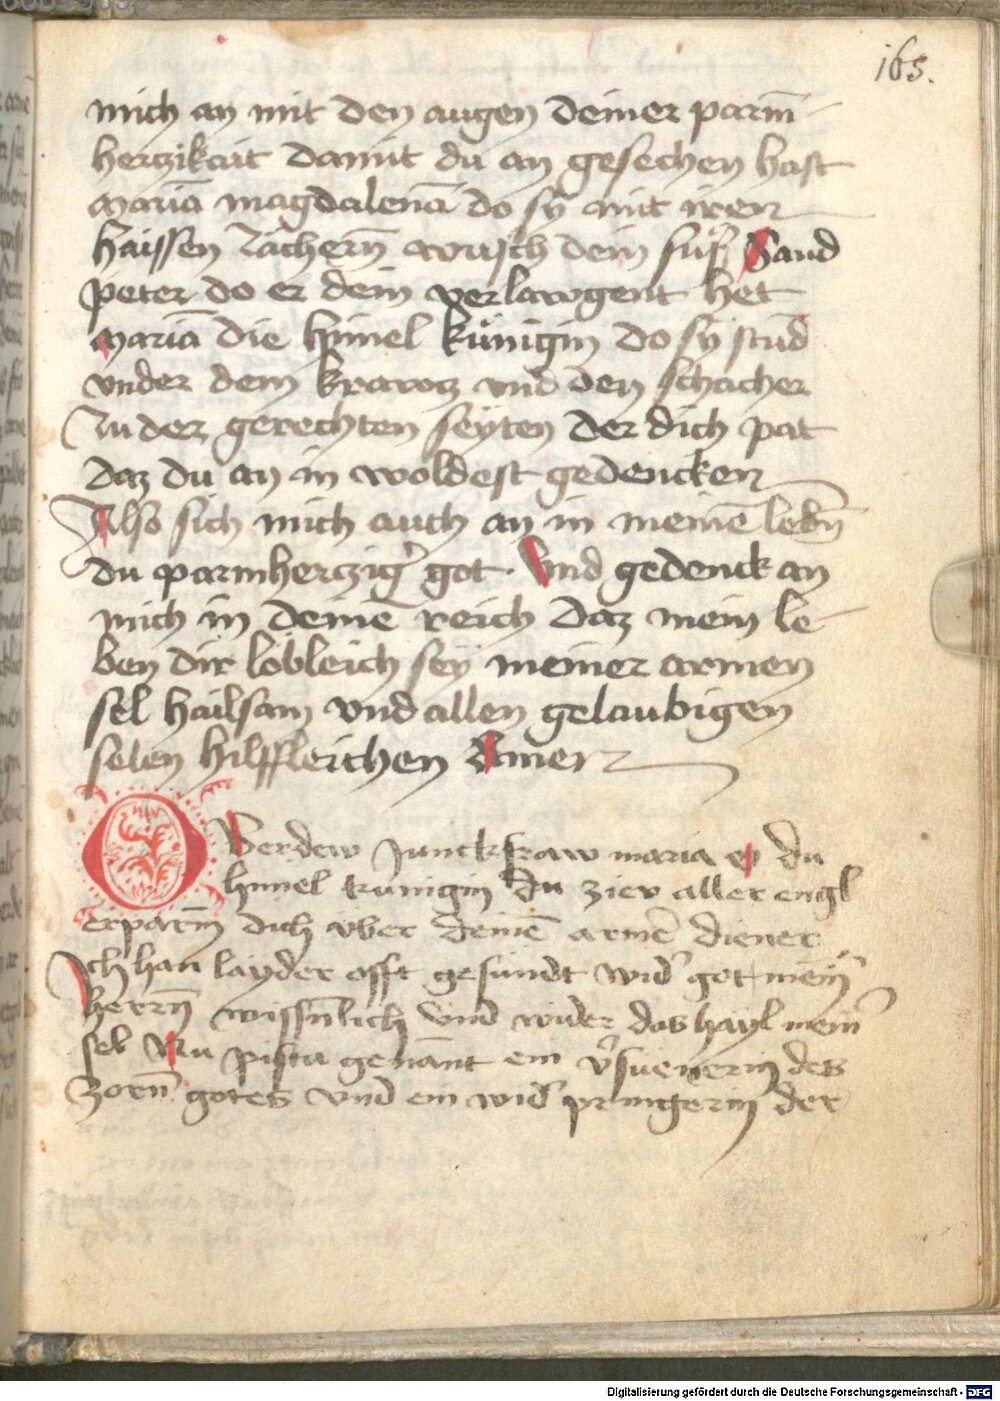 165.
mich an mit den augen deiner parm̄
hertzikait damit du an gesechen hast
mariā magdalenā do sy mit iren
haissen zächern̄ wusch dein füs Sand
peter do er dein verlawgent het
mariā die himel künigin do sy stūd
vnder dem krawtz vnd den schacher
zu der gerechten seyten der dich pat
daz du an in woldest gedencken
Also sich mich auch an in meinē lebn̄
du parmhertzig' got · Vnd gedenck an
mich in deinē reich daz mein le
ben dir lobleich sey meiner armen
sel hailsam vnd allen gelaubigen
selen hilffleichen Amen
O Werdew junckfraw maria O du
himel künigin du zier aller engl
erparm̄ dich vber deinē armē diener
Ich han layder offt gesundt wid' got mein'
herrn̄ wissn̄lich vnd wider das hayl mein'
sel Nu pistu genānt ein v'suenerin des
zorn̄ gotes vnd ein wid' pringerin der
Digitalisierung gefördert durch die Deutsche Forschungsgemeinschaft - DFG